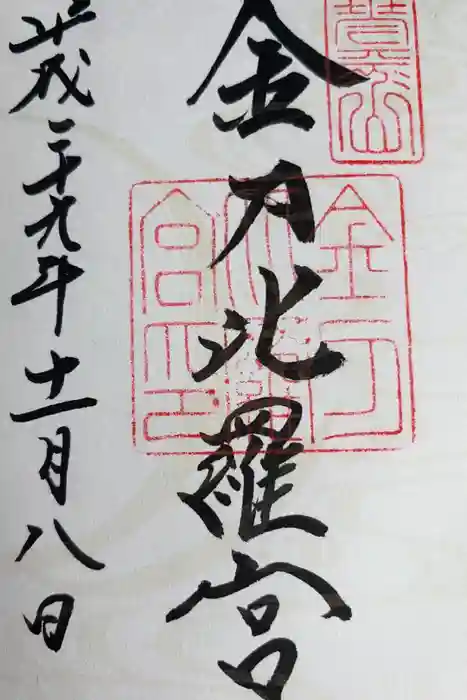 金刀比羅宮
金刀
比羅
宮印
平成二十九年十一月八日